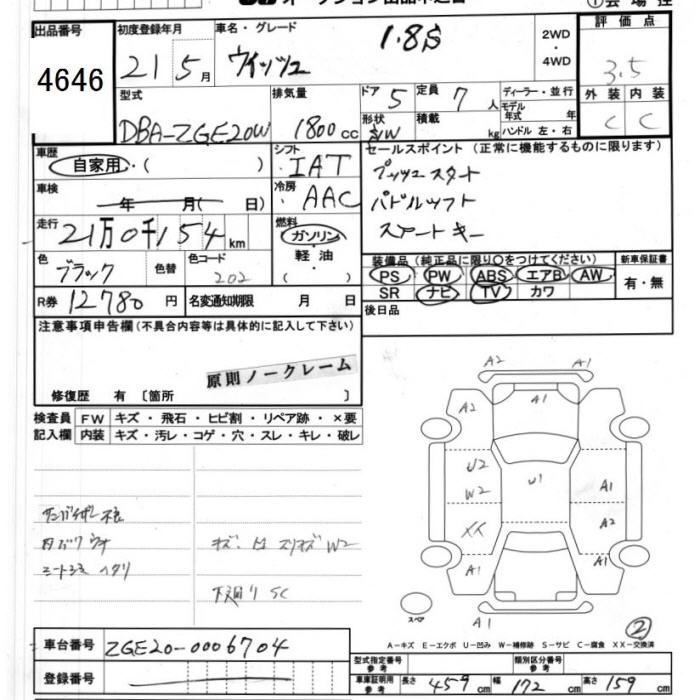 出品番号
4646
初度登録年月
21 5月
車名・グレード
ウイッシュ
1.8S
2WD
・
4WD
評価点
3.5
外装 内装
C C
型式
DBA-ZGE20W
排気量
1800cc
ドア
5
定員
7人
形状
S/W
積載
kg
ディーラー・並行
モデル年式
年
ハンドル 左・右
車歴
自家用・( )
シフト
IAT
車検
年 月( 日)
冷房
AAC
走行
21万0千154km
燃料
ガソリン・
軽油・
( )
色
ブラック
色替
色コード
202
R券 12780円
名変通知期限 月 日
セールスポイント (正常に機能するものに限ります)
プッシュスタート
パドルシフト
スマートキー
装備品 (純正品に限り○をつけてください)
PS PW ABS エアB AW
SR ナビ TV カワ
新車保証書
有・無
後日品
注意事項申告欄(不具合内容等は具体的に記入して下さい)
原則ノークレーム
修復歴 有 〔箇所 〕
検査員 FW キズ・飛石・ヒビ割・リペア跡・×要
記入欄 内装 キズ・汚レ・コゲ・穴・スレ・キレ・破レ
内
シート
ヘタリ
キズ
W2
下廻りSC
A2 A1
A2 A1
U2 U1
W2 A1
XX A2
A1 A1
スペア
A1
2
A－キズ E－エクボ U－凹み W－補修跡 S－サビ C－腐食 XX－交換済
車台番号 ZGE20-0006704
登録番号
型式指定番号
参考
類別区分番号
参考
車庫証明用
参考
長さ 459cm 幅 172cm 高さ 159cm